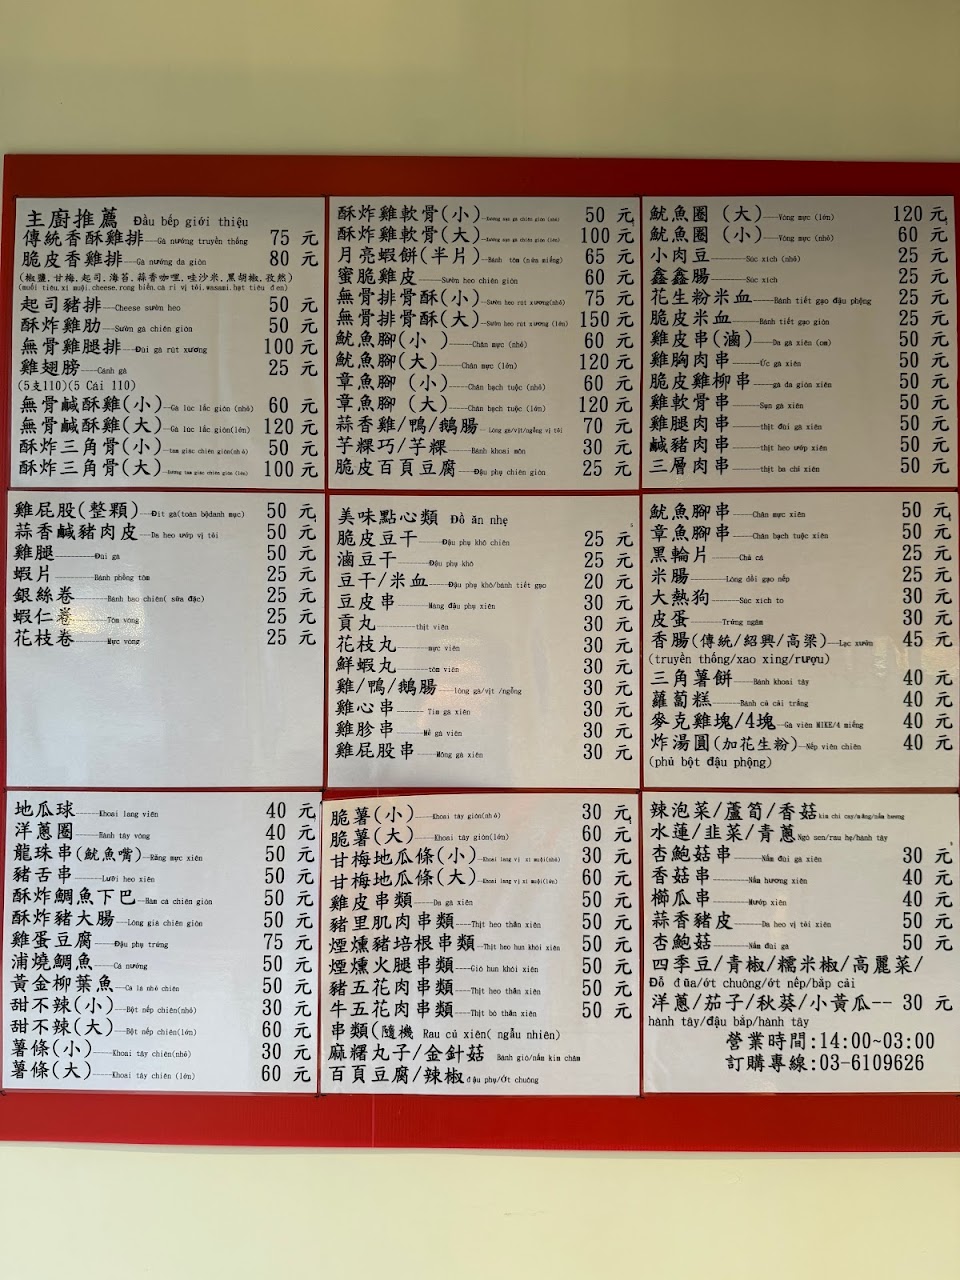 主廚推薦 Đầu bếp giới thiệu
傳統香酥雞排---Gà nướng truyền thống 75 元
脆皮香雞排---Gà nướng da giòn 80 元
(椒鹽.甘梅.起司.海苔.蒜香咖哩.哇沙米.黑胡椒.孜然)
起司豬排----Cheese sườn heo 50 元
酥炸雞肋----Sườn gà chiên giòn 50 元
無骨雞腿排---Đùi gà rút xương 100 元
雞翅膀----Cánh gà 25 元
(5支110)(5 Cái 110)
無骨鹹酥雞(小)--Gà lúc lắc giòn (nhỏ) 60 元
無骨鹹酥雞(大)--Gà lúc lắc giòn(lớn) 120 元
酥炸三角骨(小) 50 元
酥炸三角骨(大) 100 元
酥炸雞軟骨(小) 50 元
酥炸雞軟骨(大) 100 元
月亮蝦餅(半片)--Bánh tôm (nửa miếng) 65 元
蜜脆雞皮----Sườn heo chiên giòn 60 元
無骨排骨酥(小)--Sườn heo rút xương(nhỏ) 75 元
無骨排骨酥(大)--Sườn heo rút xương (lớn) 150 元
魷魚腳(小 )----Chân mực (nhỏ) 60 元
魷魚腳(大)----Chân mực (lớn) 120 元
章魚腳 (小)----Chân bạch tuộc (nhỏ) 60 元
章魚腳 (大)----Chân bạch tuộc (lớn) 120 元
蒜香雞/鴨/鵝腸-- Lòng gà/vịt/ngỗng vị tỏi 70 元
芋粿巧/芋粿----Bánh khoai môn 30 元
脆皮百頁豆腐----Đậu phụ chiên giòn 25 元
魷魚圈 (大)----Vòng mực (lớn) 120 元
魷魚圈 (小)----Vòng mực (nhỏ) 60 元
小肉豆------Súc xích (nhỏ) 25 元
鑫鑫腸------Súc xích 25 元
花生粉米血----Bánh tiết gạo đậu phộng 25 元
脆皮米血----Bánh tiết gạo giòn 25 元
雞皮串(滷)----Da gà xiên (om) 50 元
雞胸肉串----Ức gà xiên 50 元
脆皮雞柳串----gà da giòn xiên 50 元
雞軟骨串----Sụn gà xiên 50 元
雞腿肉串----thịt đùi gà xiên 50 元
鹹豬肉串----thịt heo ướp xiên 50 元
三層肉串----thịt ba chỉ xiên 50 元
雞屁股(整顆)---Đít gà(toàn bộdanh mục) 50 元
蒜香鹹豬肉皮---Da heo ướp vị tỏi 50 元
雞腿--------Đùi gà 50 元
蝦片--------Bánh phồng tôm 25 元
銀絲卷------Bánh bao chiên( sữa đặc) 25 元
蝦仁卷------Tôm vòng 25 元
花枝卷------Mực vòng 25 元
美味點心類 Đồ ăn nhẹ
脆皮豆干----Đậu phụ khô chiên 25 元
滷豆干------Đậu phụ khô 25 元
豆干/米血----Đậu phụ khô/bánh tiết gạo 20 元
豆皮串------Màng đậu phụ xiên 30 元
貢丸--------thịt viên 30 元
花枝丸------mực viên 30 元
鮮蝦丸------tôm viên 30 元
雞/鴨/鵝腸---lòng gà/vịt /ngỗng 30 元
雞心串------ Tim gà xiên 30 元
雞胗串------Mề gà viên 30 元
雞屁股串----Mông gà xiên 30 元
魷魚腳串----Chân mực xiên 50 元
章魚腳串----Chân bạch tuộc xiên 50 元
黑輪片------Chả cá 25 元
米腸--------Lòng dồi gạo nếp 25 元
大熱狗------Súc xích to 30 元
皮蛋--------Trứng ngâm 30 元
香腸(傳統/紹興/高梁)---Lạc xưởn 45 元
(truyền thống/xao xing/rượu)
三角薯餅----Bánh khoai tây 40 元
蘿蔔糕------Bánh củ cải trắng 40 元
麥克雞塊/4塊--Gà viên MIKE/4 miếng 40 元
炸湯圓(加花生粉)--Nếp viên chiên 40 元
(phủ bột đậu phộng)
地瓜球------Khoai lang viên 40 元
洋蔥圈------Hành tây vòng 40 元
龍珠串(魷魚嘴)--Răng mực xiên 50 元
豬舌串------Lưỡi heo xiên 50 元
酥炸鯛魚下巴--Hàm cá chiên giòn 50 元
酥炸豬大腸----Lòng già chiên giòn 50 元
雞蛋豆腐----Đậu phụ trứng 75 元
浦燒鯛魚----Cá nướng 50 元
黃金柳葉魚---Cá lá nhỏ chiên 50 元
甜不辣(小)----Bột nếp chiên(nhỏ) 30 元
甜不辣(大)----Bột nếp chiên(lớn) 60 元
薯條(小)------Khoai tây chiên(nhỏ) 30 元
薯條(大)------Khoai tây chiên (lớn) 60 元
脆薯(小)----Khoai tây giòn(nhỏ) 30 元
脆薯(大)------Khoai tây giòn(lớn) 60 元
甘梅地瓜條(小)--Khoai lang vị xí muội(nhỏ) 30 元
甘梅地瓜條(大)--Khoai lang vị xí muội(lớn) 60 元
雞皮串類----Da gà xiên 50 元
豬里肌肉串類----Thịt heo thăn xiên 50 元
煙燻豬培根串類--Thịt heo hun khói xiên 50 元
煙燻火腿串類----Giò hun khói xiên 50 元
豬五花肉串類----Thịt heo thăn xiên 50 元
牛五花肉串類----Thịt bò thăn xiên 50 元
串類(隨機 Rau củ xiên( ngẫu nhiên)
麻糬丸子/金針菇 Bánh giò/nấm kim châm
百頁豆腐/辣椒 đậu phụ/Ớt chuông
辣泡菜/蘆筍/香菇 kim chi cay/măng/nấm hương
水蓮/韭菜/青蔥 Ngó sen/rau hẹ/hành tây
杏鮑菇串----Nấm đùi gà xiên 30 元
香菇串------Nấm hương xiên 40 元
櫛瓜串------Mướp xiên 40 元
蒜香豬皮----Da heo vị tỏi xiên 50 元
杏鮑菇------Nấm đùi gà 50 元
四季豆/青椒/糯米椒/高麗菜/
Đỗ đũa/ớt chuông/ớt nếp/bắp cải
洋蔥/茄子/秋葵/小黃瓜-- 30 元
hành tây/đậu bắp/hành tây
營業時間:14:00~03:00
訂購專線:03-6109626